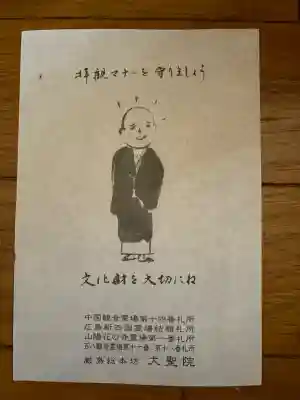 拝観マナーを守りましょう
文化財を大切にね
中国観音霊場第十四番札所
広島新四国霊場結願札所
山陽花の寺霊場第一番札所
厳島総本坊 大聖院